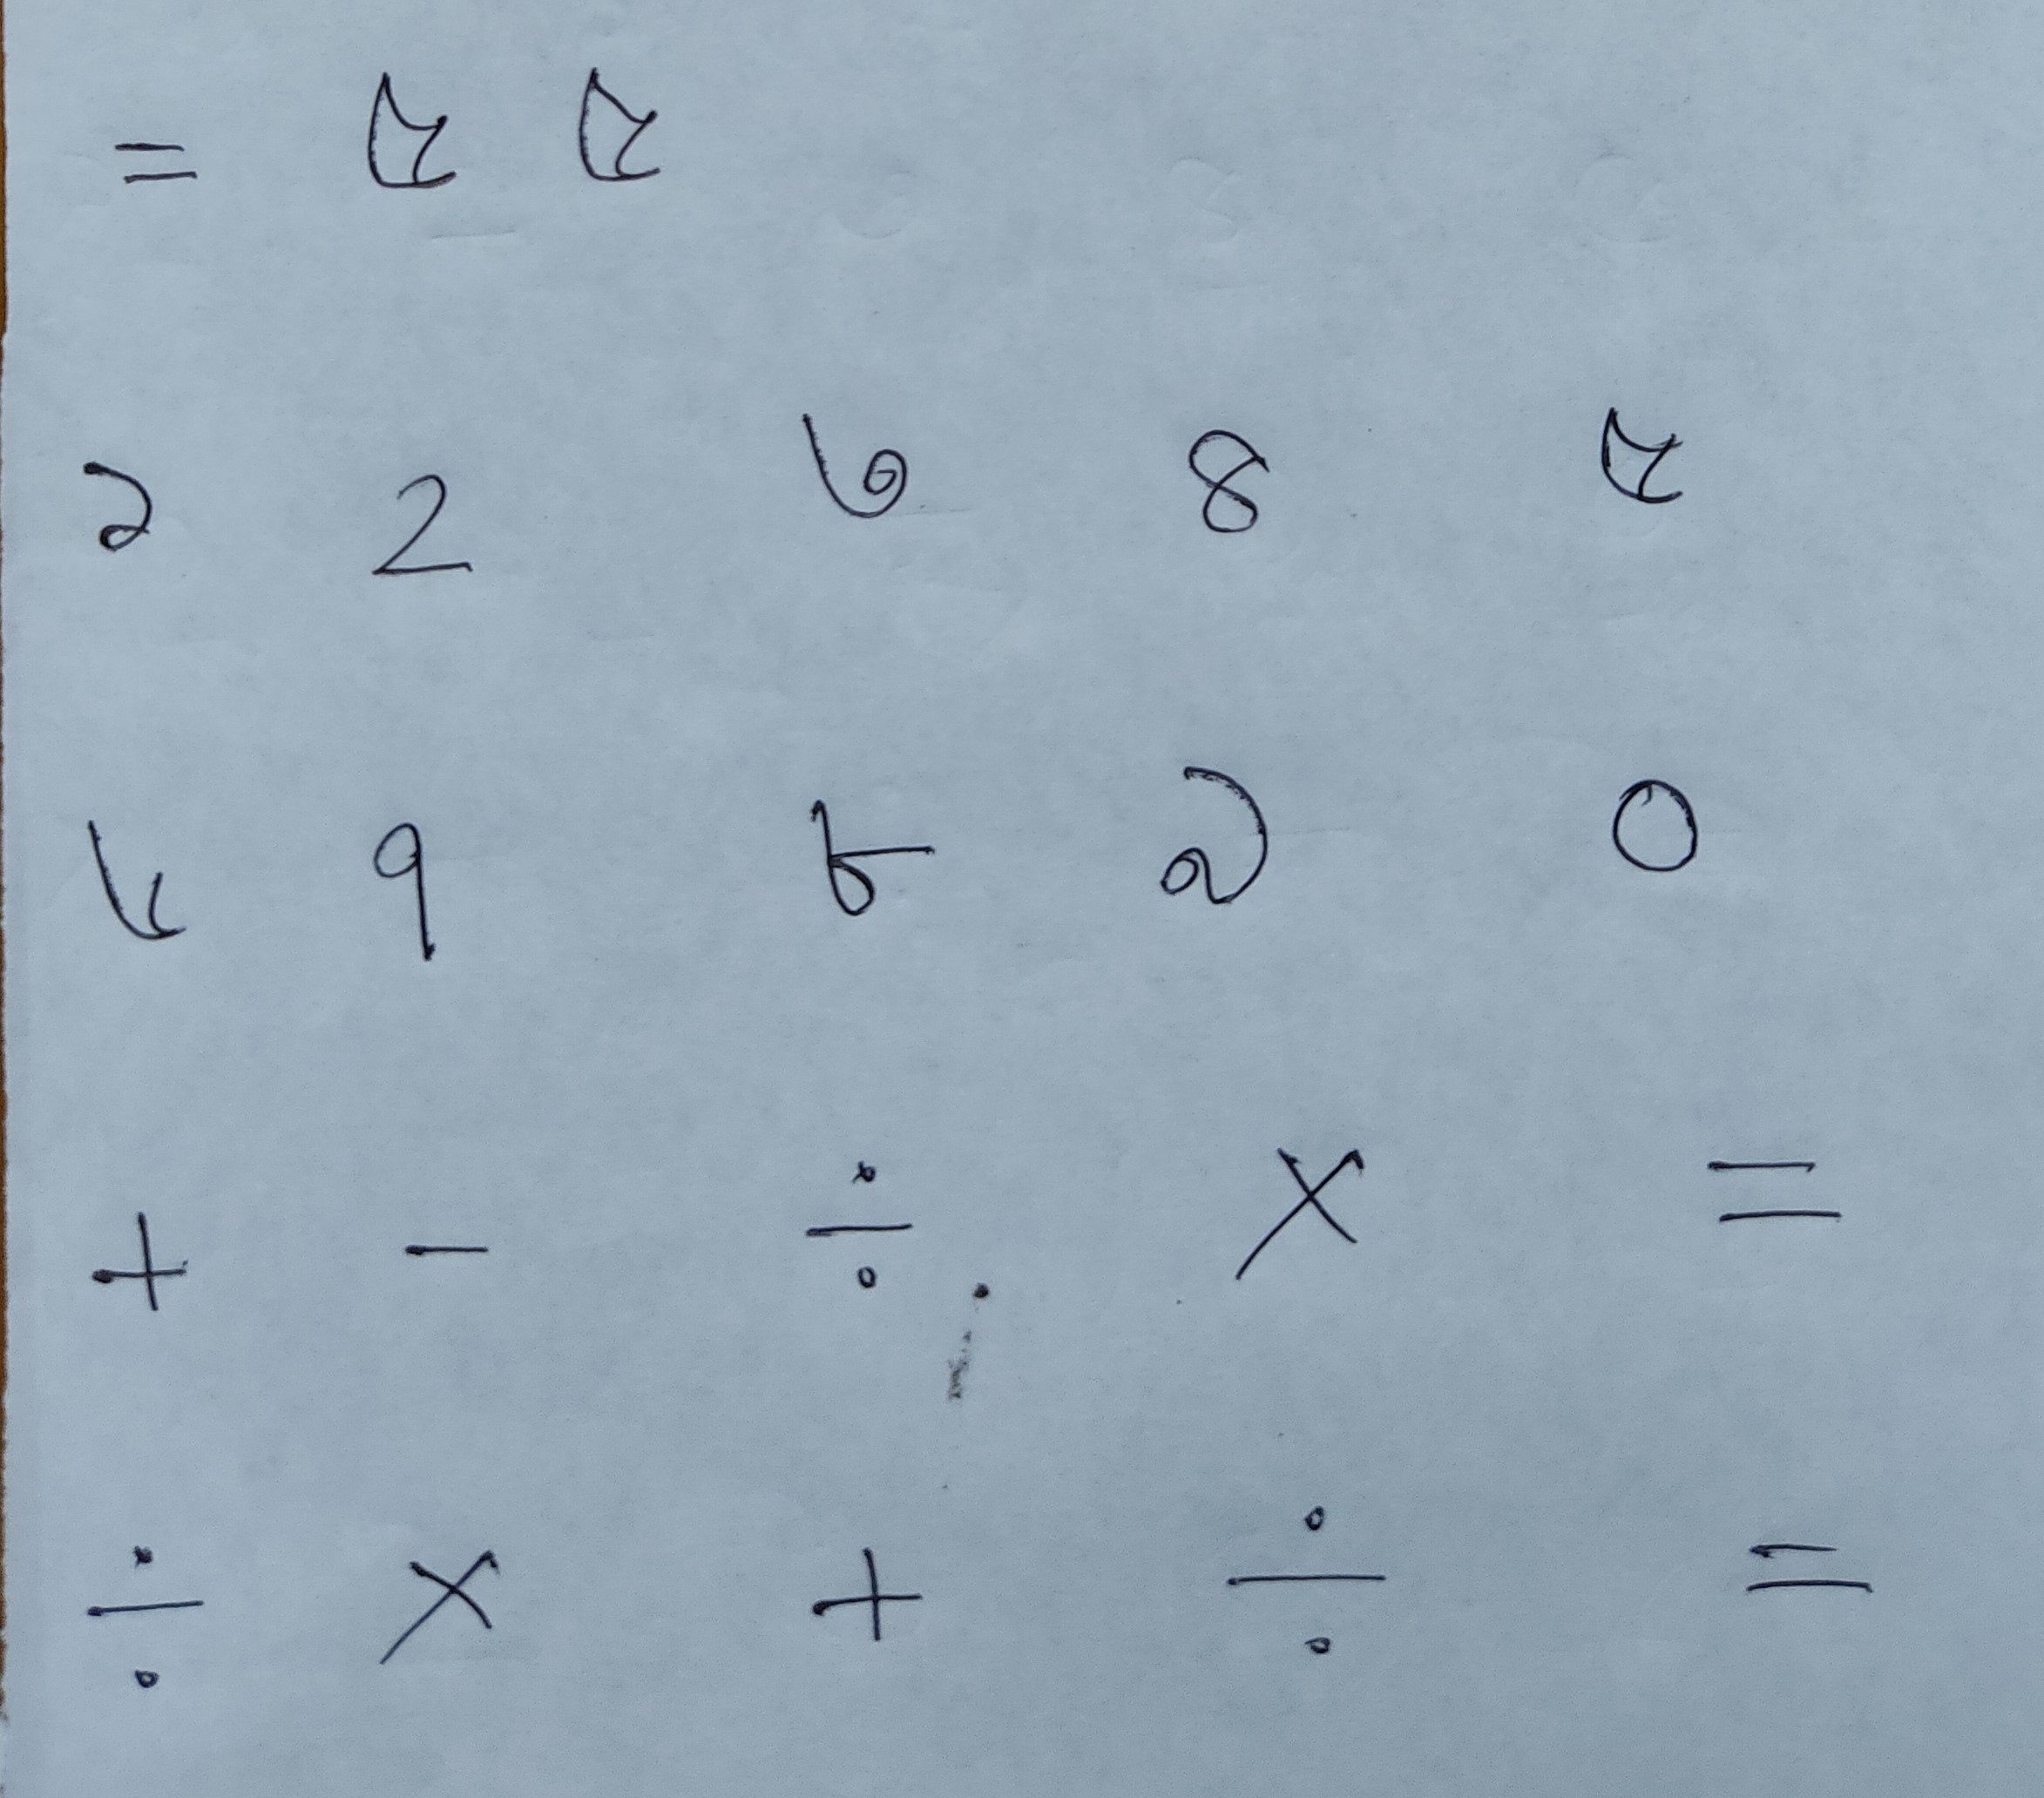 = ৫ ৫
১ ২ ৩ ৪ ৫
৬ ৭ ৮ ৯ ০
+ - ÷ × =
÷ × + ÷ =